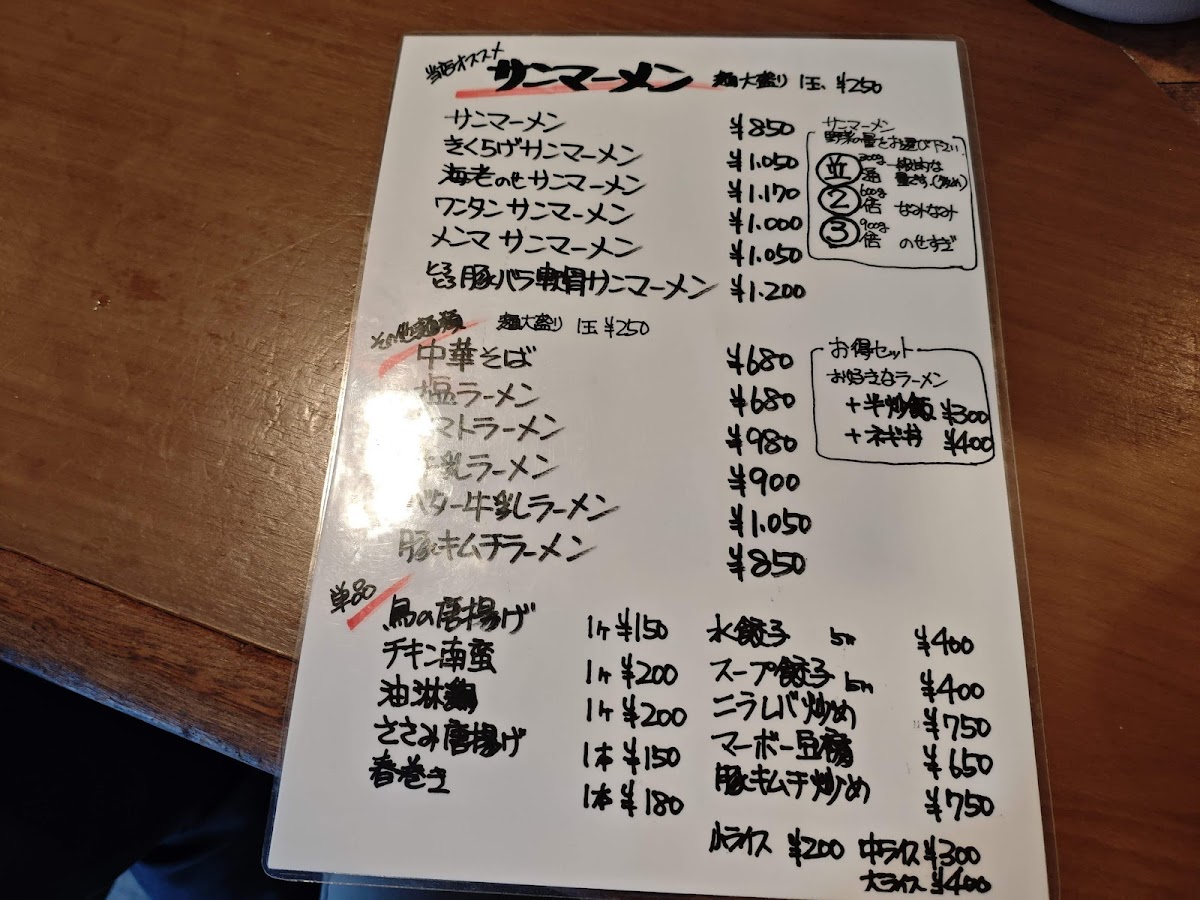 当店オススメ サンマーメン 麺大盛り 1玉 ¥250
サンマーメン ¥850
きくらげサンマーメン ¥1.050
海老のせサンマーメン ¥1.170
ワンタンサンマーメン ¥1.000
メンマ サンマーメン ¥1.050
とろとろ豚バラ軟骨サンマーメン ¥1.200
サンマーメン
野菜の量をお選び下さい
並 300g 普通 一般的な
量です。(多め)
2倍 600g なみなみ
3倍 900g のせすぎ
その他麺類 麺大盛り 1玉 ¥250
中華そば ¥680
塩ラーメン ¥680
マトラーメン ¥980
乳ラーメン ¥900
バター牛乳ラーメン ¥1.050
豚キムチラーメン ¥850
お得セット
お好きなラーメン
+半炒飯 ¥300
+ネギ丼 ¥400
単品
鳥の唐揚げ 1ヶ ¥150
チキン南蛮 1ヶ ¥200
油淋鶏 1ヶ ¥200
ささみ唐揚げ 1本 ¥150
春巻き 1本 ¥180
水餃子 5ヶ ¥400
スープ餃子 5ヶ ¥400
ニラレバ炒め ¥750
マーボー豆腐 ¥650
豚キムチ炒め ¥750
小ライス ¥200 中ライス ¥300
大ライス ¥400